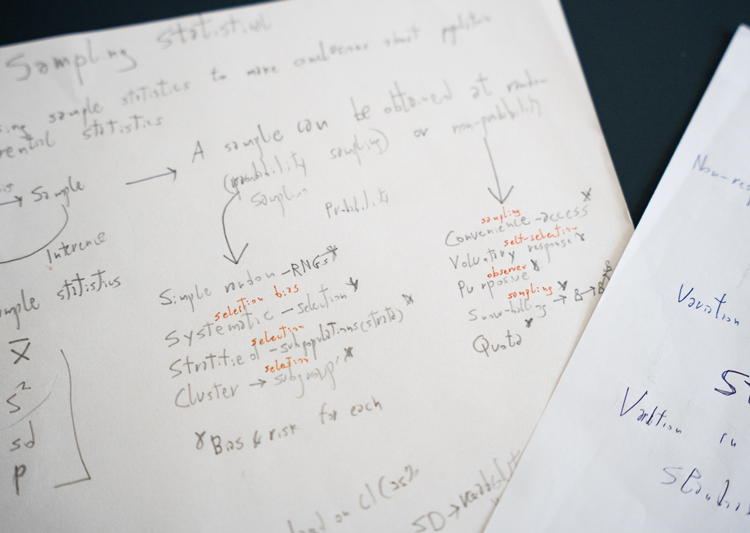 Sampling Statistical
sample statistics to make conclusions about population
statistics
A sample can be obtained at random
(probability sampling) or non-probability
→ Sample →
sampling Probability
Inference
sample statistics
X̄
S²
sd
p
Simple random - RNGs*
selection bias
Systematic - selection*
selection
Stratified - subpopulations (strata)*
selection
Cluster → subgroup*
* Bias & risk for each
sampling
Convenience - access*
self-selection
Voluntary response*
observer
Purposive*
sampling
Snow-balling*
Quota*
on CI (95%
SD →
Variation
St
in